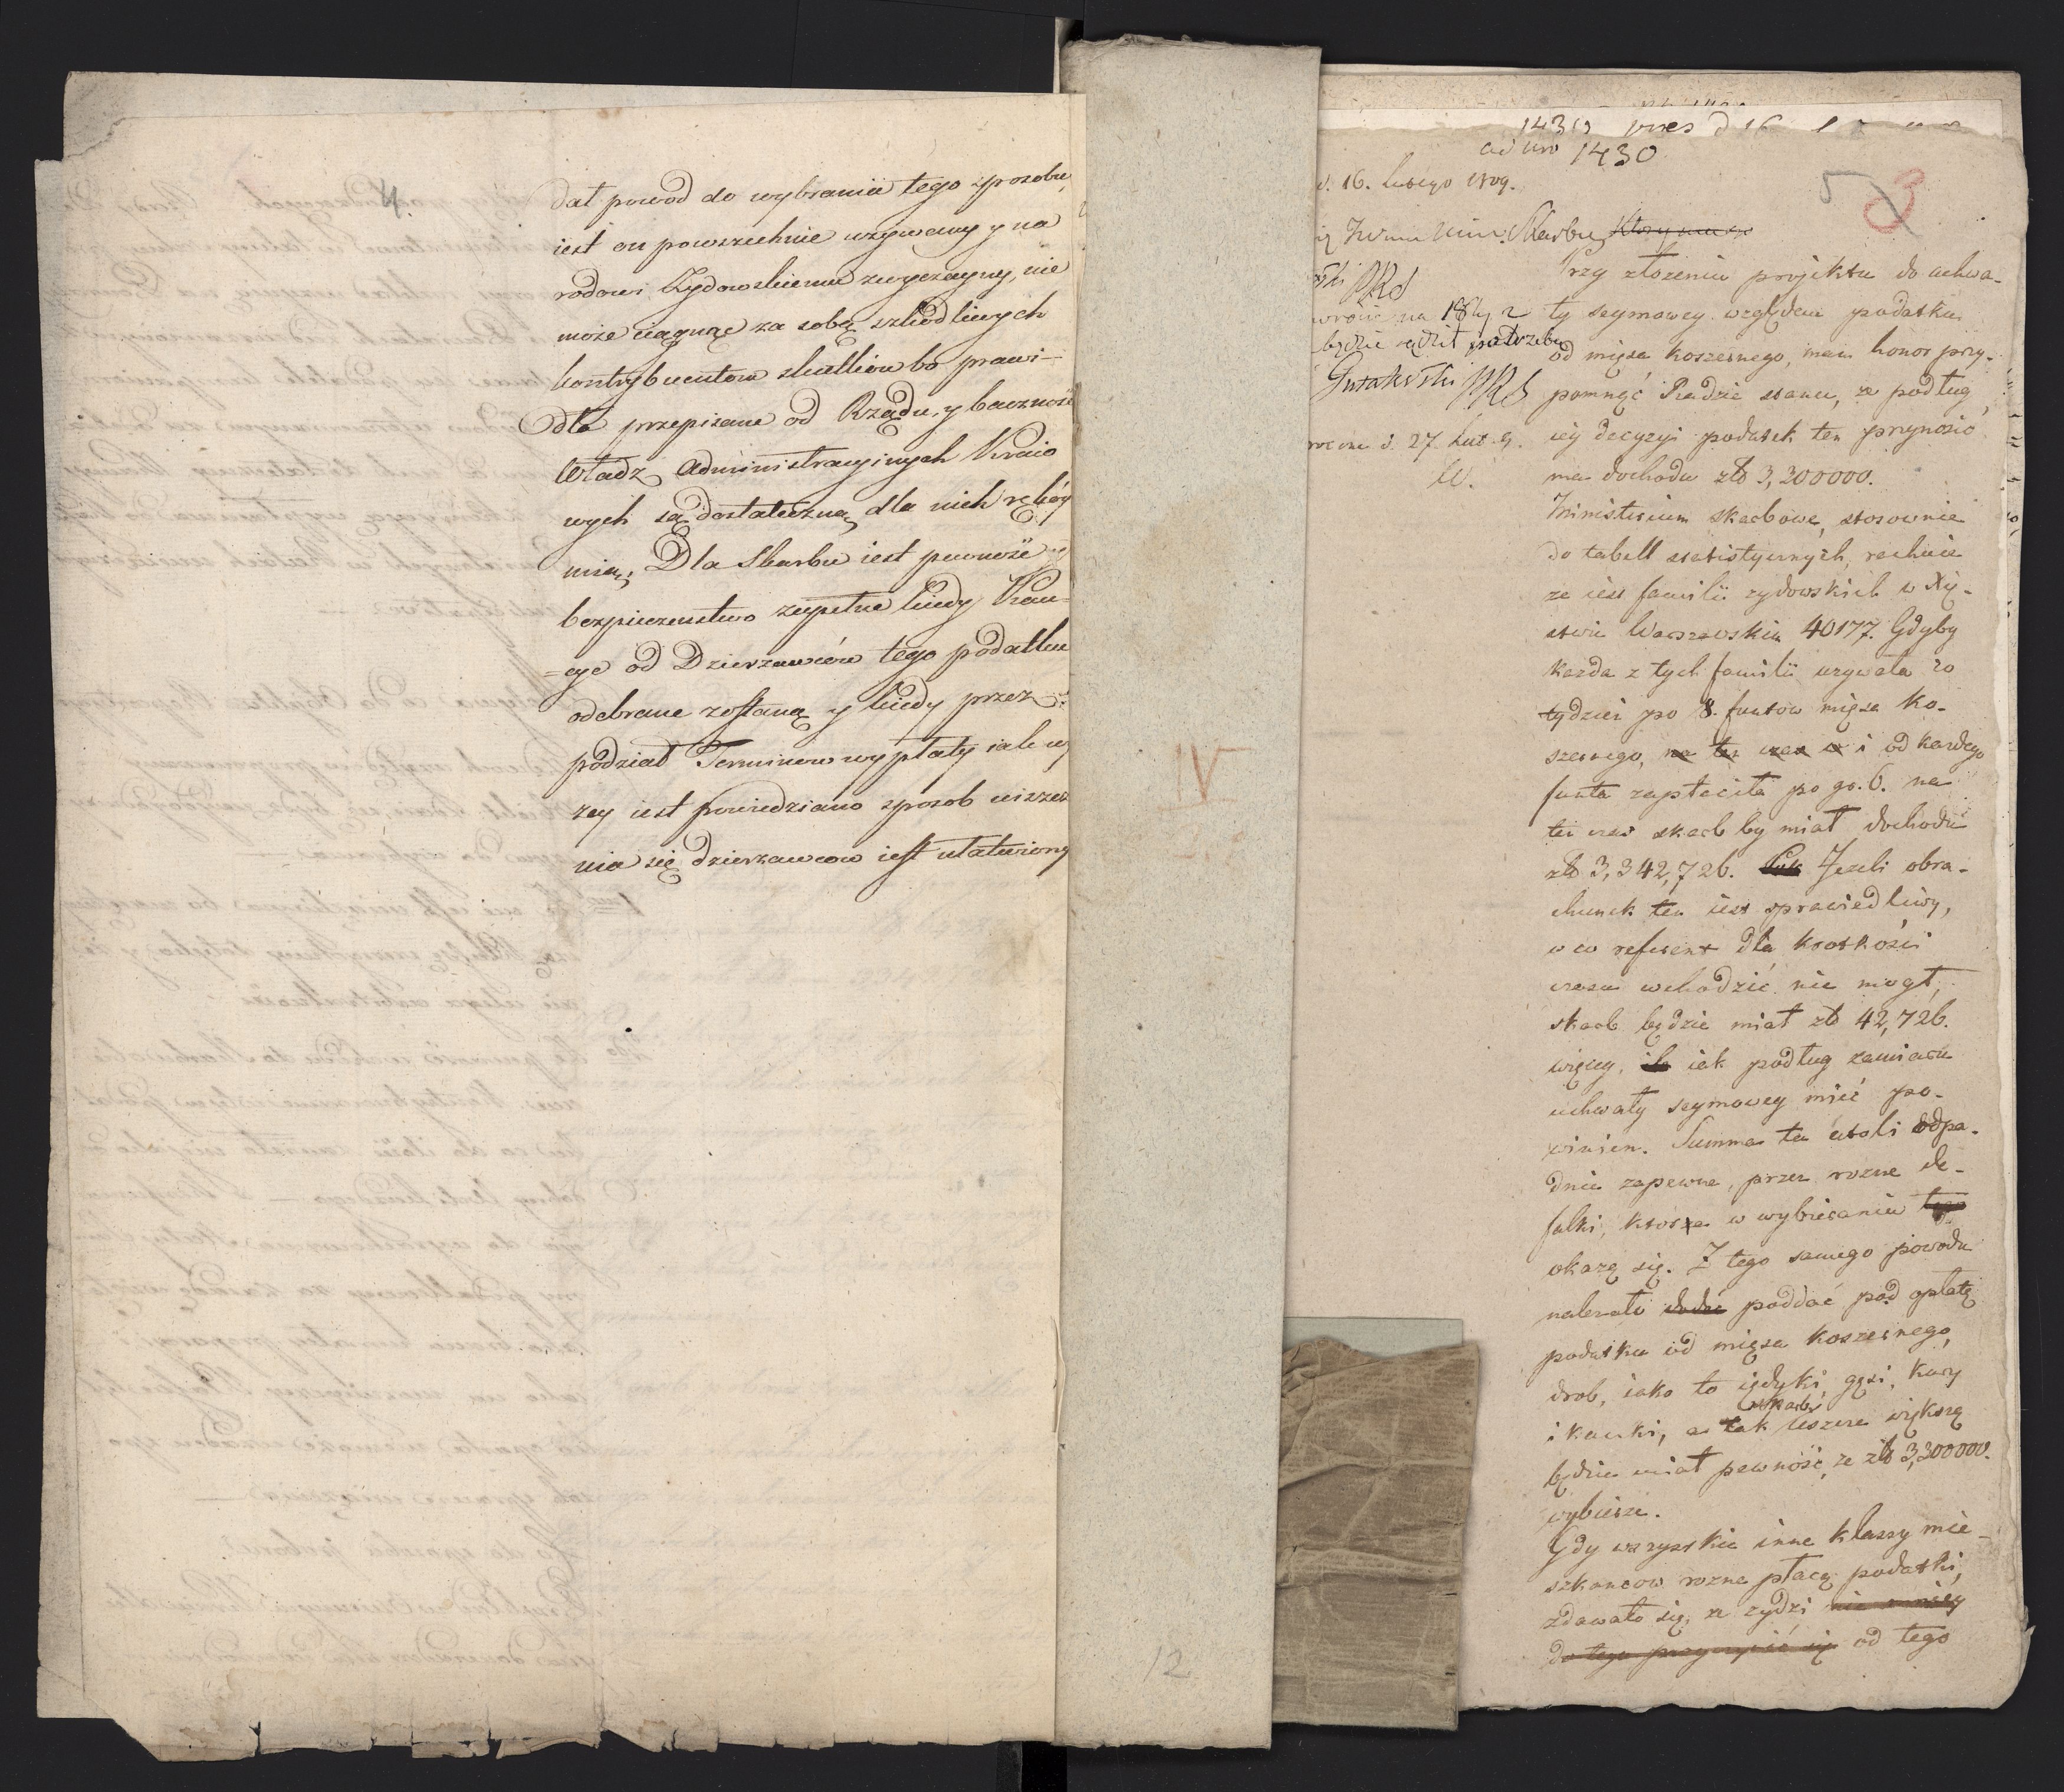 4.
dał powod do wybrania tego sposobu,
iest on powszechnie używany y na
rodowi Żydowskiemu zwyczayny, nie
może ciągnąć za sobą szkodliwych
kontrybuentow skutkow bo prawi-
dła przepisane od Rządu, y baczność
Władz Administracyinych Kraio
wych są dostateczną dla nich rękoy
mią; Dla Skarbu iest pewność y
bezpieczenstwo zupełne kiedy Kau-
=cye od Dzierzawców tego podatku
odebrane zostaną y kiedy przez
podział Terminow wypłaty iak wy
zey iest powiedziano sposob uiszcze
nia się dzierzawcow iest ułatwiony
IV
12
ad nro 1430
d. 16. Lutego 1809.
5
3
Skarbu
Przy złożeniu projektu do uchwa-
ły seymowey względem podatku
będzie sądził potrzebę
od mięsa koszernego, mam honor przy-
Gutakowski PRS
pomnąć Radzie stanu, ze podług
d. 27. Lut. 9.
iey decyzyi podatek ten przynosić
ma dochodu złł 3,300000.
Ministerium skarbowe, stosownie
do tabell statistycznych, rachuie
ze iest familii zydowskich w Xię-
stwie Warszawskim 40177. Gdyby
kazda z tych familii uzywała co
tydzień po 8. funtow mięsa ko-
szernego, na ten czas w i od kazdego
funta zapłaciła po gr. 6. na
ten czas skarb by miał dochodu
złł 3,342,726. Jezeli obra-
chunek ten iest sprawiedliwy,
w co referent dla krotkości
czasu wchodzić nie mogł,
skarb będzie miał złł 42,726.
więcey, iak podług zamiaru
uchwały seymowey mieć po-
winien. Summa ta atoli odpa-
dnie zapewne, przez rozne de-
falki, ktore w wybieraniu tego
okazą się. Z tego samego powodu
nalezało poddać pod opłatę
podatku od mięsa koszernego,
drob, iako to iędyki, gęsi, kury
i kaczki, a tak skarb ieszcze większą
będzie miał pewność, ze złł 3,300000.
wybierze.
Gdy wszystkie inne klassy mie-
szkancow rozne płacą podatki,
zdawało się, ze zydzi nie mniey
do tego przyczynić się od tego